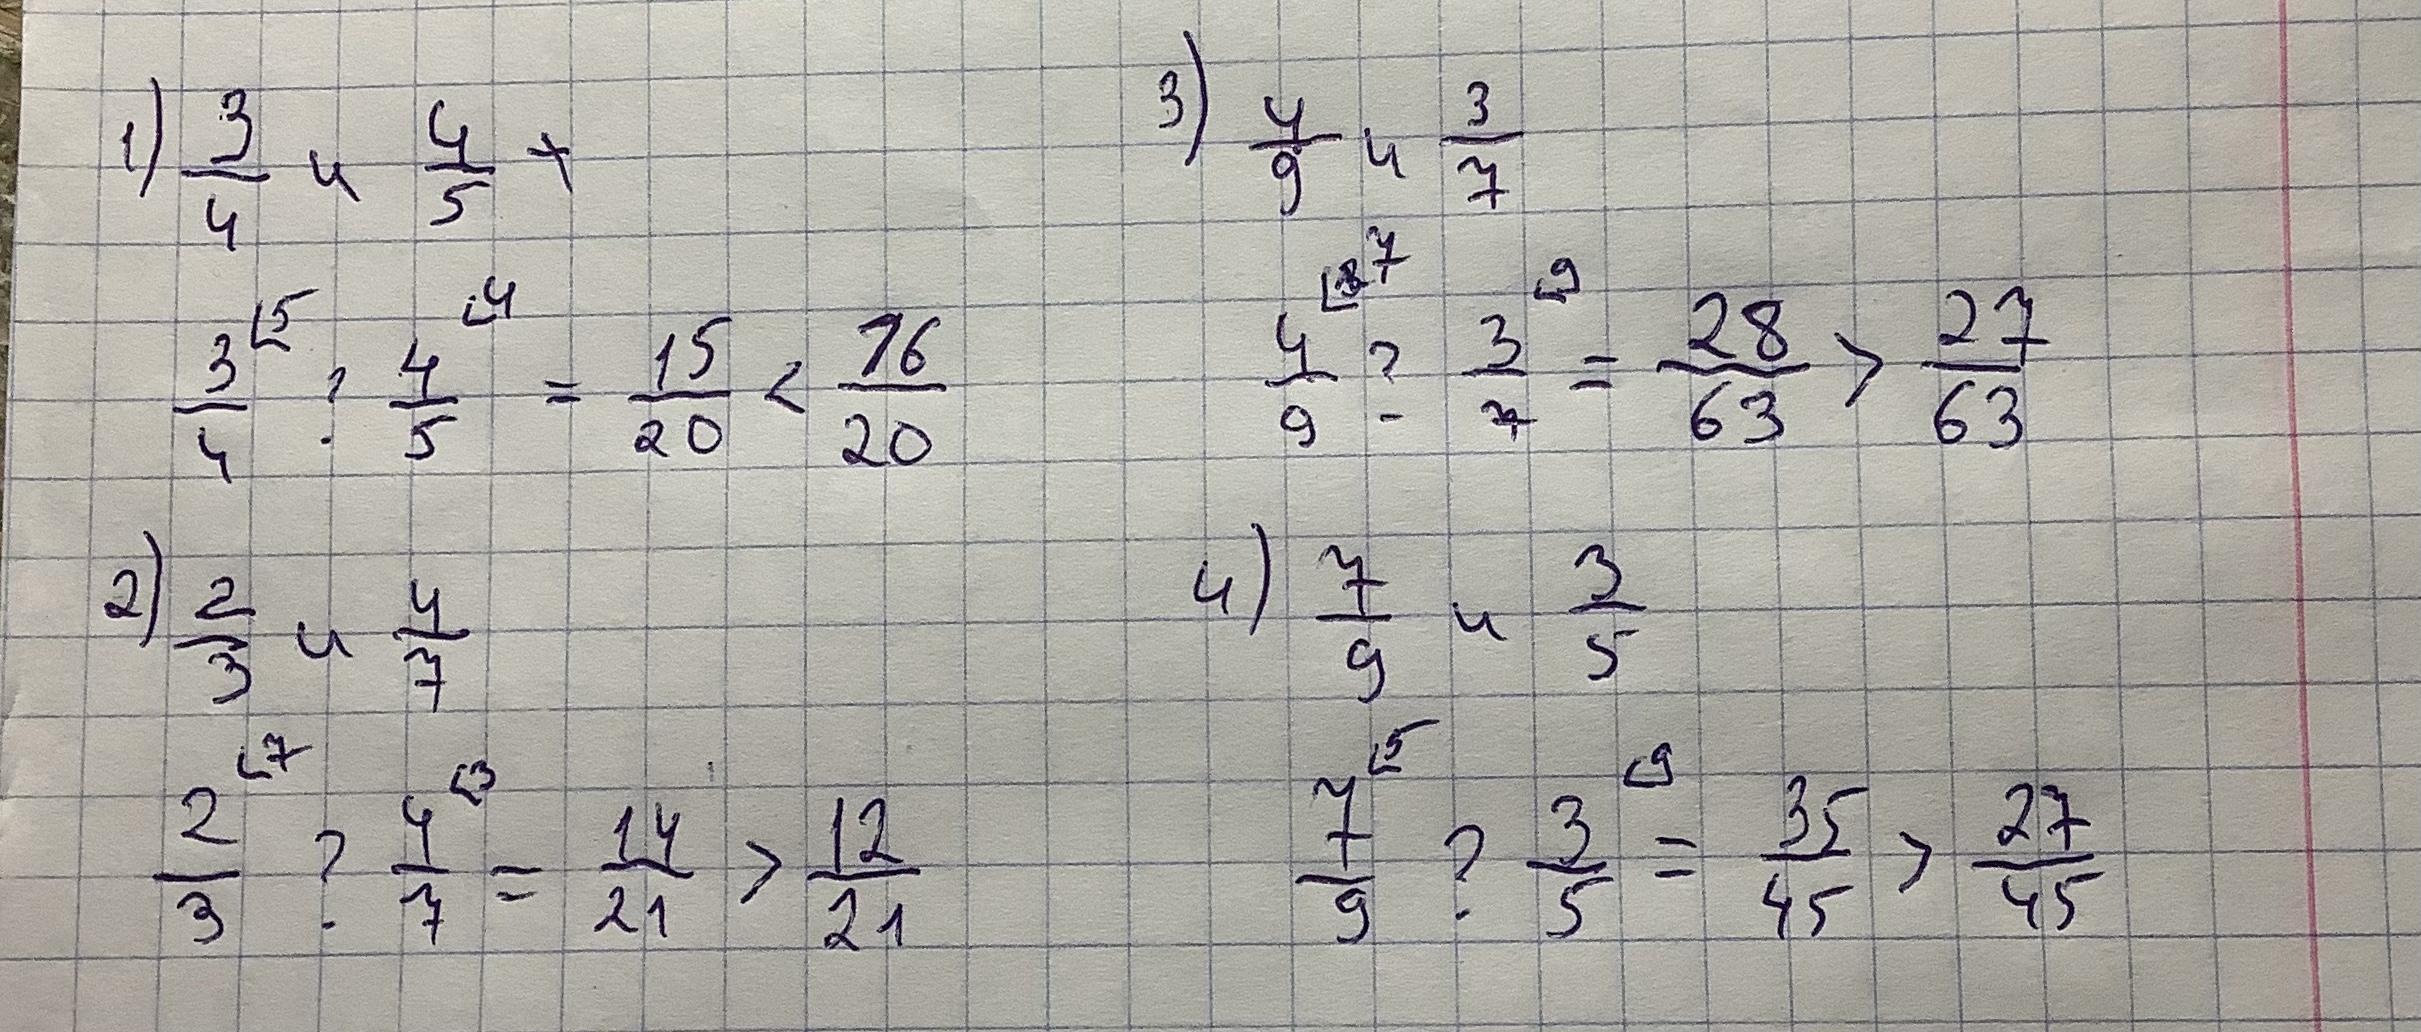 1) 3/4 и 4/5 +
3/4 ⌊5 ? 4/5 ⌊4 = 15/20 < 16/20
2) 2/3 и 4/7
2/3 ⌊7 ? 4/7 ⌊3 = 14/21 > 12/21
3) 4/9 и 3/7
4/9 ⌊7 ? 3/7 ⌊9 = 28/63 > 27/63
4) 7/9 и 3/5
7/9 ⌊5 ? 3/5 ⌊9 = 35/45 > 27/45